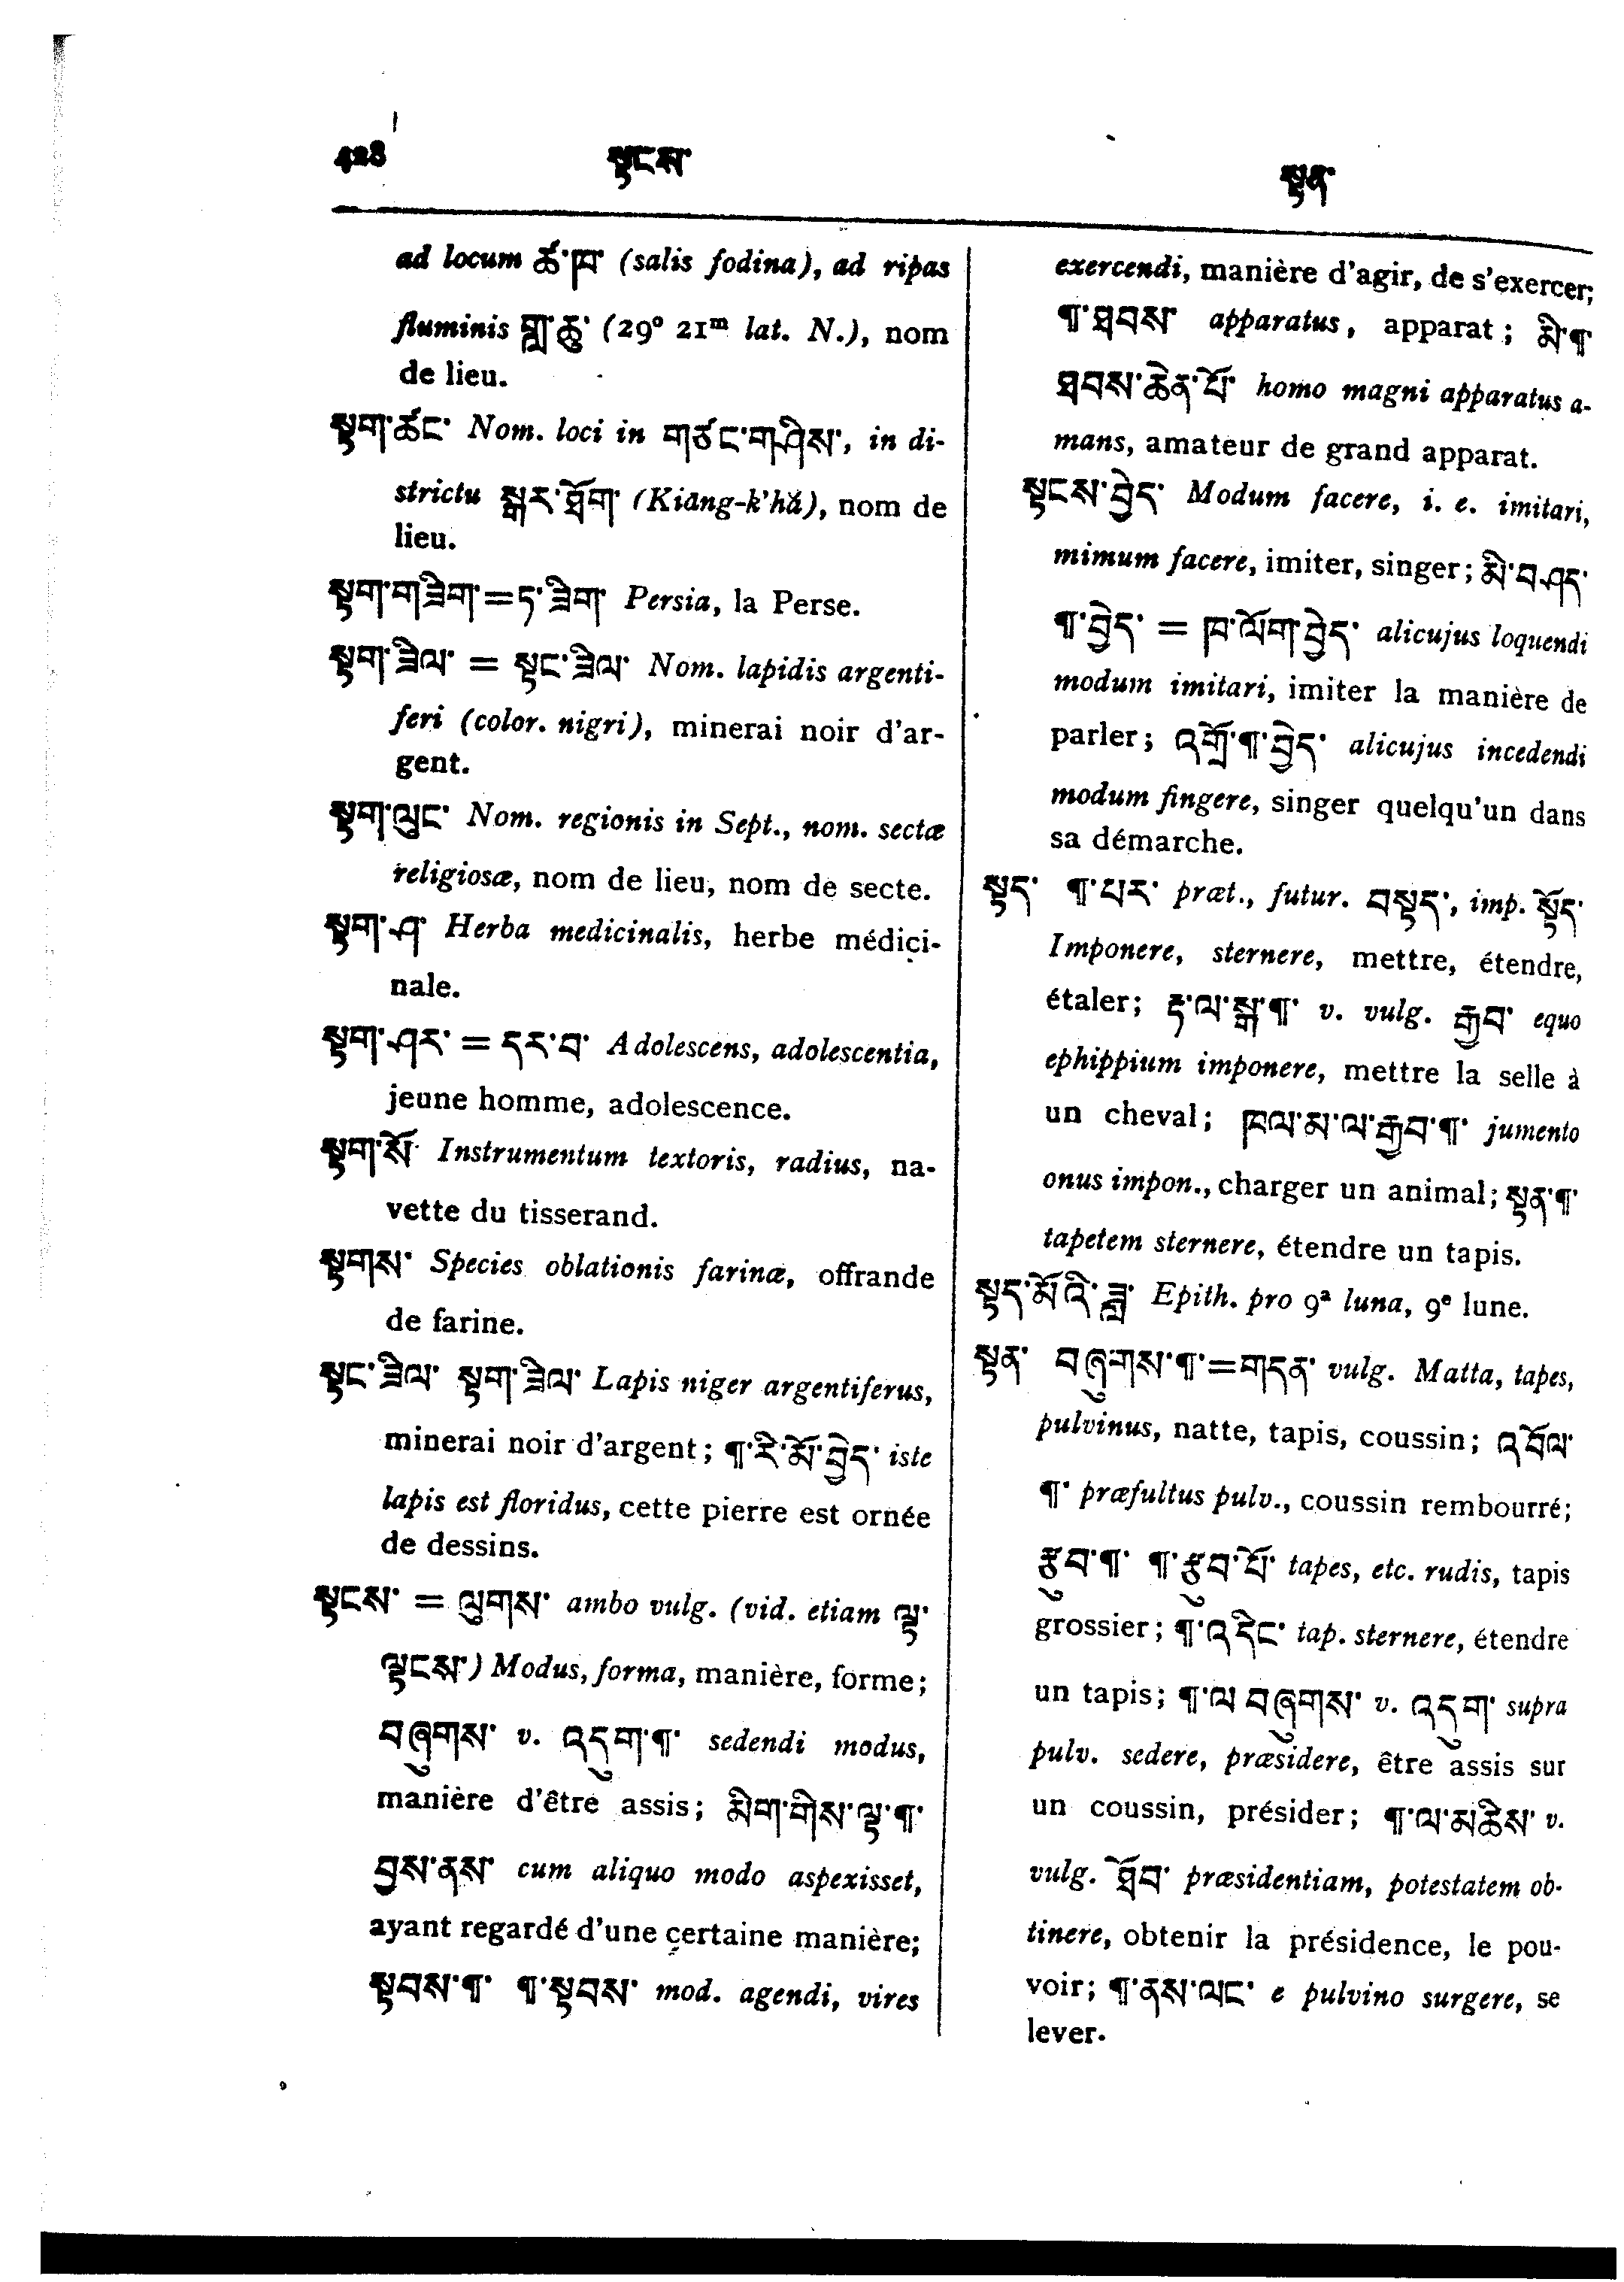 428 སྟངས་ སྟན་
ad locum ཚ་ཁ་ (salis fodina), ad ripas
fluminis བླ་ཆུ་ (29º 21ᵐ lat. N.), nom
de lieu.
སྟག་ཚང་ Nom. loci in གཙང་གཤིས་, in di-
strictu སྒར་ཐོག་ (Kiāng-k'hǎ), nom de
lieu.
སྟག་གཟིག་=ཏ་ཟིག་ Persia, la Perse.
སྟག་ཟིལ་ = སྟང་ཟིལ་ Nom. lapidis argenti-
feri (color. nigri), minerai noir d'ar-
gent.
སྟག་ལུང་ Nom. regionis in Sept., nom. sectæ
religiosæ, nom de lieu, nom de secte.
སྟག་ཤ་ Herba medicinalis, herbe médici-
nale.
སྟག་ཤར་ = དར་བ་ Adolescens, adolescentia,
jeune homme, adolescence.
སྟག་སོ་ Instrumentum textoris, radius, na-
vette du tisserand.
སྟགས་ Species oblationis farinæ, offrande
de farine.
སྟང་ཟིལ་ སྟག་ཟིལ་ Lapis niger argentiferus,
minerai noir d'argent; ¶་རི་མོ་བྱེད་ iste
lapis est floridus, cette pierre est ornée
de dessins.
སྟངས་ = ལུགས་ ambo vulg. (vid. etiam ལྟ་
ལྟངས་) Modus, forma, manière, forme;
བཞུགས་ v. འདུག་¶་ sedendi modus,
manière d'être assis; མིག་གིས་ལྟ་¶་
བྱས་ནས་ cum aliquo modo aspexisset,
ayant regardé d'une certaine manière;
སྟབས་¶་ ¶་སྟབས་ mod. agendi, vires
exercendi, manière d'agir, de s'exercer;
¶་ཐབས་ apparatus, apparat; མི་¶་
ཐབས་ཆེན་པོ་ homo magni apparatus a-
mans, amateur de grand apparat.
སྟངས་བྱེད་ Modum facere, i. e. imitari,
mimum facere, imiter, singer; མི་བཤད་
¶་བྱེད་ = ཁ་ལོག་བྱེད་ alicujus loquendi
modum imitari, imiter la manière de
parler; འགྲོ་¶་བྱེད་ alicujus incedendi
modum fingere, singer quelqu'un dans
sa démarche.
སྟད་ ¶་པར་ præt., futur. བསྟད་, imp. སྟོད་
Imponere, sternere, mettre, étendre,
étaler; རྟ་ལ་སྒ་¶་ v. vulg. རྒྱབ་ equo
ephippium imponere, mettre la selle à
un cheval; ཁལ་མ་ལ་རྒྱབ་¶་ jumento
onus impon., charger un animal; སྟན་¶་
tapetem sternere, étendre un tapis.
སྟད་མོའི་ཟླ་ Epith. pro 9ª luna, 9ᵉ lune.
སྟན་ བཞུགས་¶་=གདན་ vulg. Matta, tapes,
pulvinus, natte, tapis, coussin; འབོལ་
¶་ præfultus pulv., coussin rembourré;
རྩུབ་¶་ ¶་རྩུབ་པོ་ tapes, etc. rudis, tapis
grossier; ¶་འདིང་ tap. sternere, étendre
un tapis; ¶་ལ་བཞུགས་ v. འདུག་ supra
pulv. sedere, præsidere, être assis sur
un coussin, présider; ¶་ལ་མཆིས་ v.
vulg. ཐོབ་ præsidentiam, potestatem ob-
tinere, obtenir la présidence, le pou-
voir; ¶་ནས་ལང་ e pulvino surgere, se
lever.